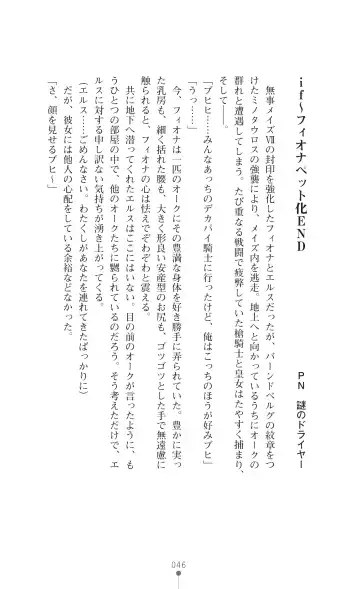 if～フィオナペット化END
PN　謎のドライヤー
　無事メイズⅦの封印を強化したフィオナとエルスだったが、バーンドベルグの紋章をつ
けたミノタウロスの強襲により、メイズ内を逃走。地上へと向かっているうちにオークの
群れと遭遇してしまう。たび重なる戦闘で疲弊していた槍騎士と皇女はたやすく捕まり、
そして――。
「ブヒヒ……みんなあっちのデカパイ騎士に行ったけど、俺はこっちのほうが好みブヒ」
「うっ……」
　今、フィオナは一匹のオークにその豊満な身体を好き勝手に弄られていた。豊かに実っ
た乳房も、細く括れた腰も、大きく形良い安産型のお尻も、ゴツゴツとした手で無遠慮に
触られると、フィオナの心は怯えでぞわぞわと震える。
　共に地下へ潜ってくれたエルスはここにはいない。目の前のオークが言ったように、も
うひとつの部屋の中で、他のオークたちに嬲られているのだろう。そう考えただけで、エ
ルスに対する申し訳ない気持ちが湧き上がってくる。
（エルス……ごめんなさい。わたくしがあなたを連れてきたばっかりに）
　だが、彼女には他人の心配をしている余裕などなかった。
「さ、顔を見せるブヒ～」
046